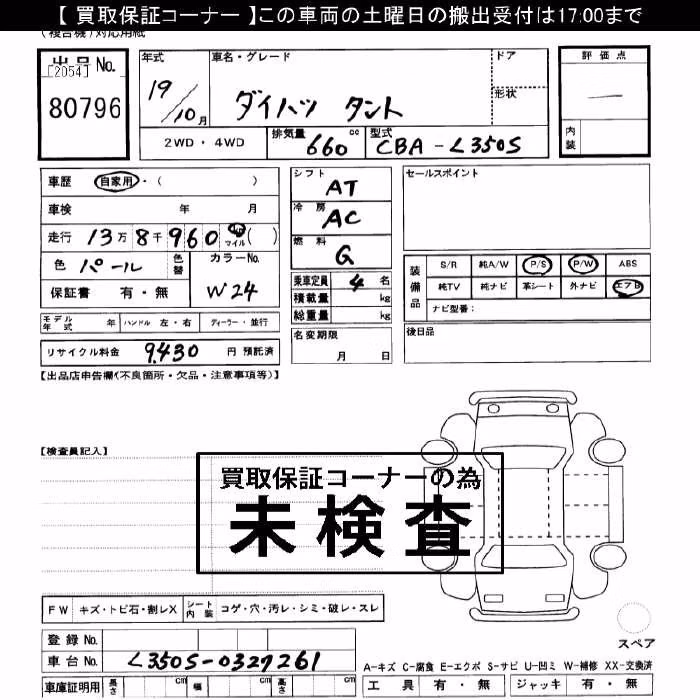 【 買取保証コーナー 】この車両の土曜日の搬出受付は17:00まで
(複合機)対応用紙
出品No.
[2054]
80796
年式 19/10月
車名・グレード
ダイハツ タント
ドア
形状
評価点
—
内装
2WD・4WD
排気量 660 cc
型式 CBA-L350S
車歴 自家用・( )
車検 年 月
走行 13万8千960 km マイル( )
色 パール 色替
カラーNo. W24
保証書 有・無
シフト AT
冷房 AC
燃料 G
乗車定員 4 名
積載量 kg
総重量 kg
セールスポイント
装備品
S/R 純A/W P/S P/W ABS
純TV 純ナビ 革シート 外ナビ エアB
ナビ型番:
モデル年式 年 ハンドル 左・右 ディーラー・並行
リサイクル料金 9,430 円 預託済
名変期限
月 日
後日品
【出品店申告欄(不良箇所・欠品・注意事項等)】
【検査員記入】
買取保証コーナーの為
未検査
FW キズ・トビ石・割レX シート内装 コゲ・穴・汚レ・シミ・破レ・スレ
登録No.
車台No. L350S-0327261
車庫証明用 長さ cm 幅 cm 高さ cm
スペア
A-キズ C-腐食 E-エクボ S-サビ U-凹ミ W-補修 XX-交換済
工具 有・無 ジャッキ 有・無